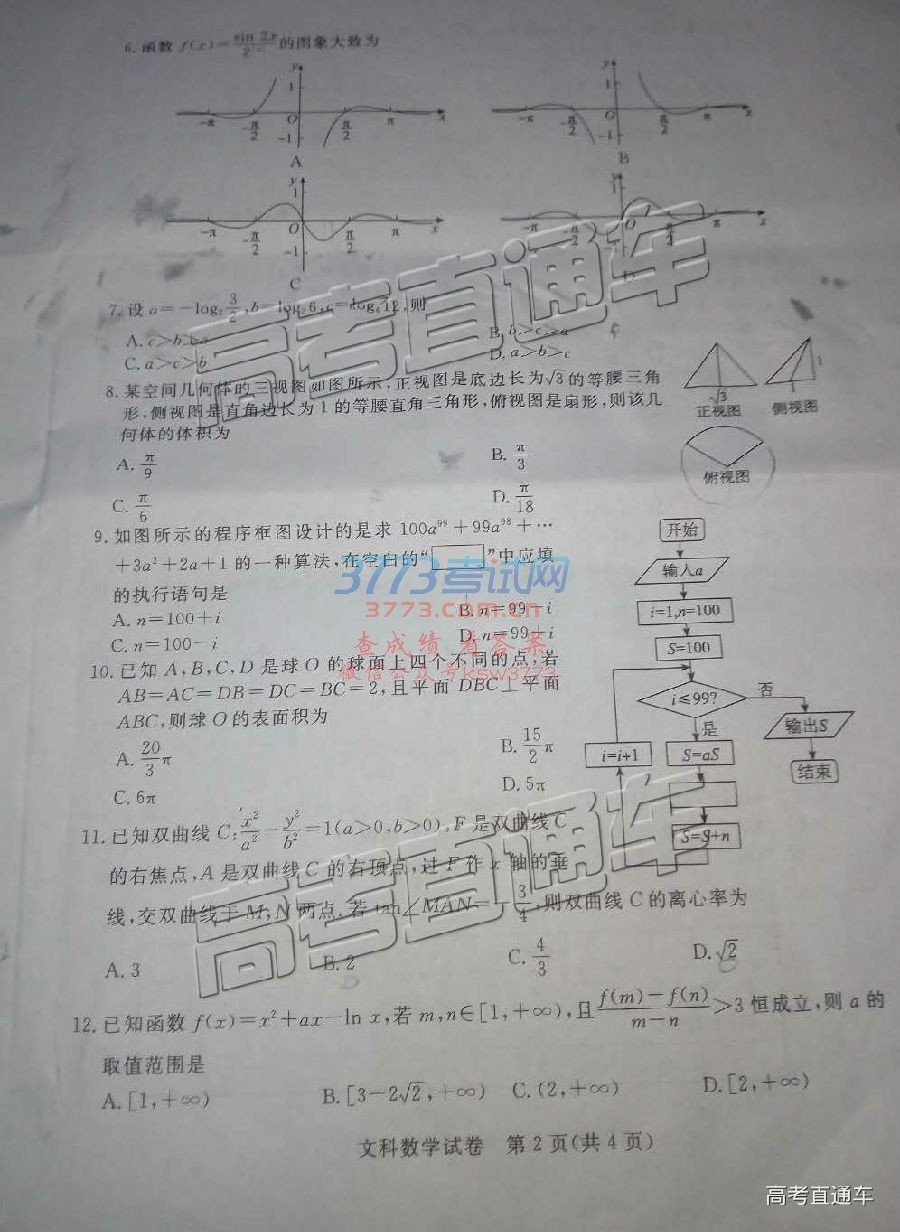 6. 函数 f(x)=sin 2x/2^|x| 的图象大致为
y 1 O -π -π/2 π/2 π x -1
A
y 1 O -π -π/2 π/2 π x -1
B
y 1 O -π -π/2 π/2 π x -1
C
y O -π -π/2 π/2 π x -1
7. 设 a=-log₂ 3/2, b=log₂6, c=log₄12, 则
A. c>b>a B. b>c>a
C. a>c>b D. a>b>c
8. 某空间几何体的三视图如图所示,正视图是底边长为√3的等腰三角
形,侧视图是直角边长为1的等腰直角三角形,俯视图是扇形,则该几
何体的体积为
√3 1 1
正视图 侧视图
俯视图
A. π/9 B. π/3
C. π/6 D. π/18
9. 如图所示的程序框图设计的是求 100a⁹⁹+99a⁹⁸+…
+3a²+2a+1 的一种算法,在空白的“ ”中应填
的执行语句是
A. n=100+i B. n=99-i
C. n=100-i D. n=99+i
开始
输入a
i=1,n=100
S=100
i≤99?
否
是
输出S
i=i+1
S=aS
结束
S=S+n
10. 已知 A,B,C,D 是球 O 的球面上四个不同的点,若
AB=AC=DB=DC=BC=2,且平面 DBC⊥平面
ABC,则球 O 的表面积为
A. 20/3 π B. 15/2 π
C. 6π D. 5π
11. 已知双曲线 C: x²/a² - y²/b² =1(a>0,b>0),F 是双曲线 C
的右焦点,A 是双曲线 C 的右顶点,过 F 作 x 轴的垂
线,交双曲线于 M,N 两点.若 tan∠MAN=-3/4,则双曲线 C 的离心率为
A. 3 B. 2 C. 4/3 D. √2
12. 已知函数 f(x)=x²+ax-ln x,若 m,n∈[1,+∞),且 f(m)-f(n)/m-n >3 恒成立,则 a 的
取值范围是
A. [1,+∞) B. [3-2√2,+∞) C. (2,+∞) D. [2,+∞)
文科数学试卷 第2页(共4页)
高考直通车
高考直通车
3773考试网
3773.com.cn
查成绩 看答案
微信公众号ksw3773
高考直通车